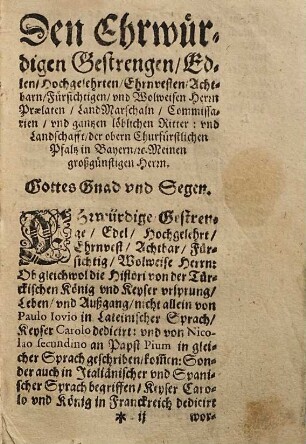 Den Ehrwür-
digen Gestrengen/ Ed-
len/ Hochgelehrten/ Ehrnvesten/ Acht-
barn/ Fürsichtigen/ vnd Wolweisen Herrn
Prælaten / Land Marschaln/ Commissa-
rien / vnd gantzen löblichen Ritter: vnd
Landschafft/ der obern Churfürstlichen
Pfalz in Bayern/ ꝛc. Meinen
großgünstigen Herrn.
Gottes Gnad vnd Segen.
EHrwürdige Gestren-
ge / Edel / Hochgelehrt/
Ehrnvest / Achtbar / Für-
sichtig / Wolweise Herrn:
Ob gleichwol die Histori von der Tür-
ckischen König vnd Keyser vrsprung/
Leben/ vnd Außgang/ nicht allein von
Paulo Iovio in Lateinischer Sprach/
Keyser Carolo dedicirt: vnd von Nico-
lao secundino an Papst Pium in glei-
cher Sprach geschriben/ kom̃en: Son-
der auch in Italiänischer vnd Spani-
scher Sprach begriffen/ Keyser Caro-
lo vnd König in Franckreich dedicirt
* ij wor-